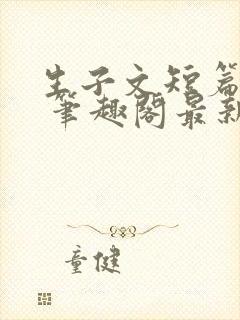 生子文短篇
笔趣阁最新
童健